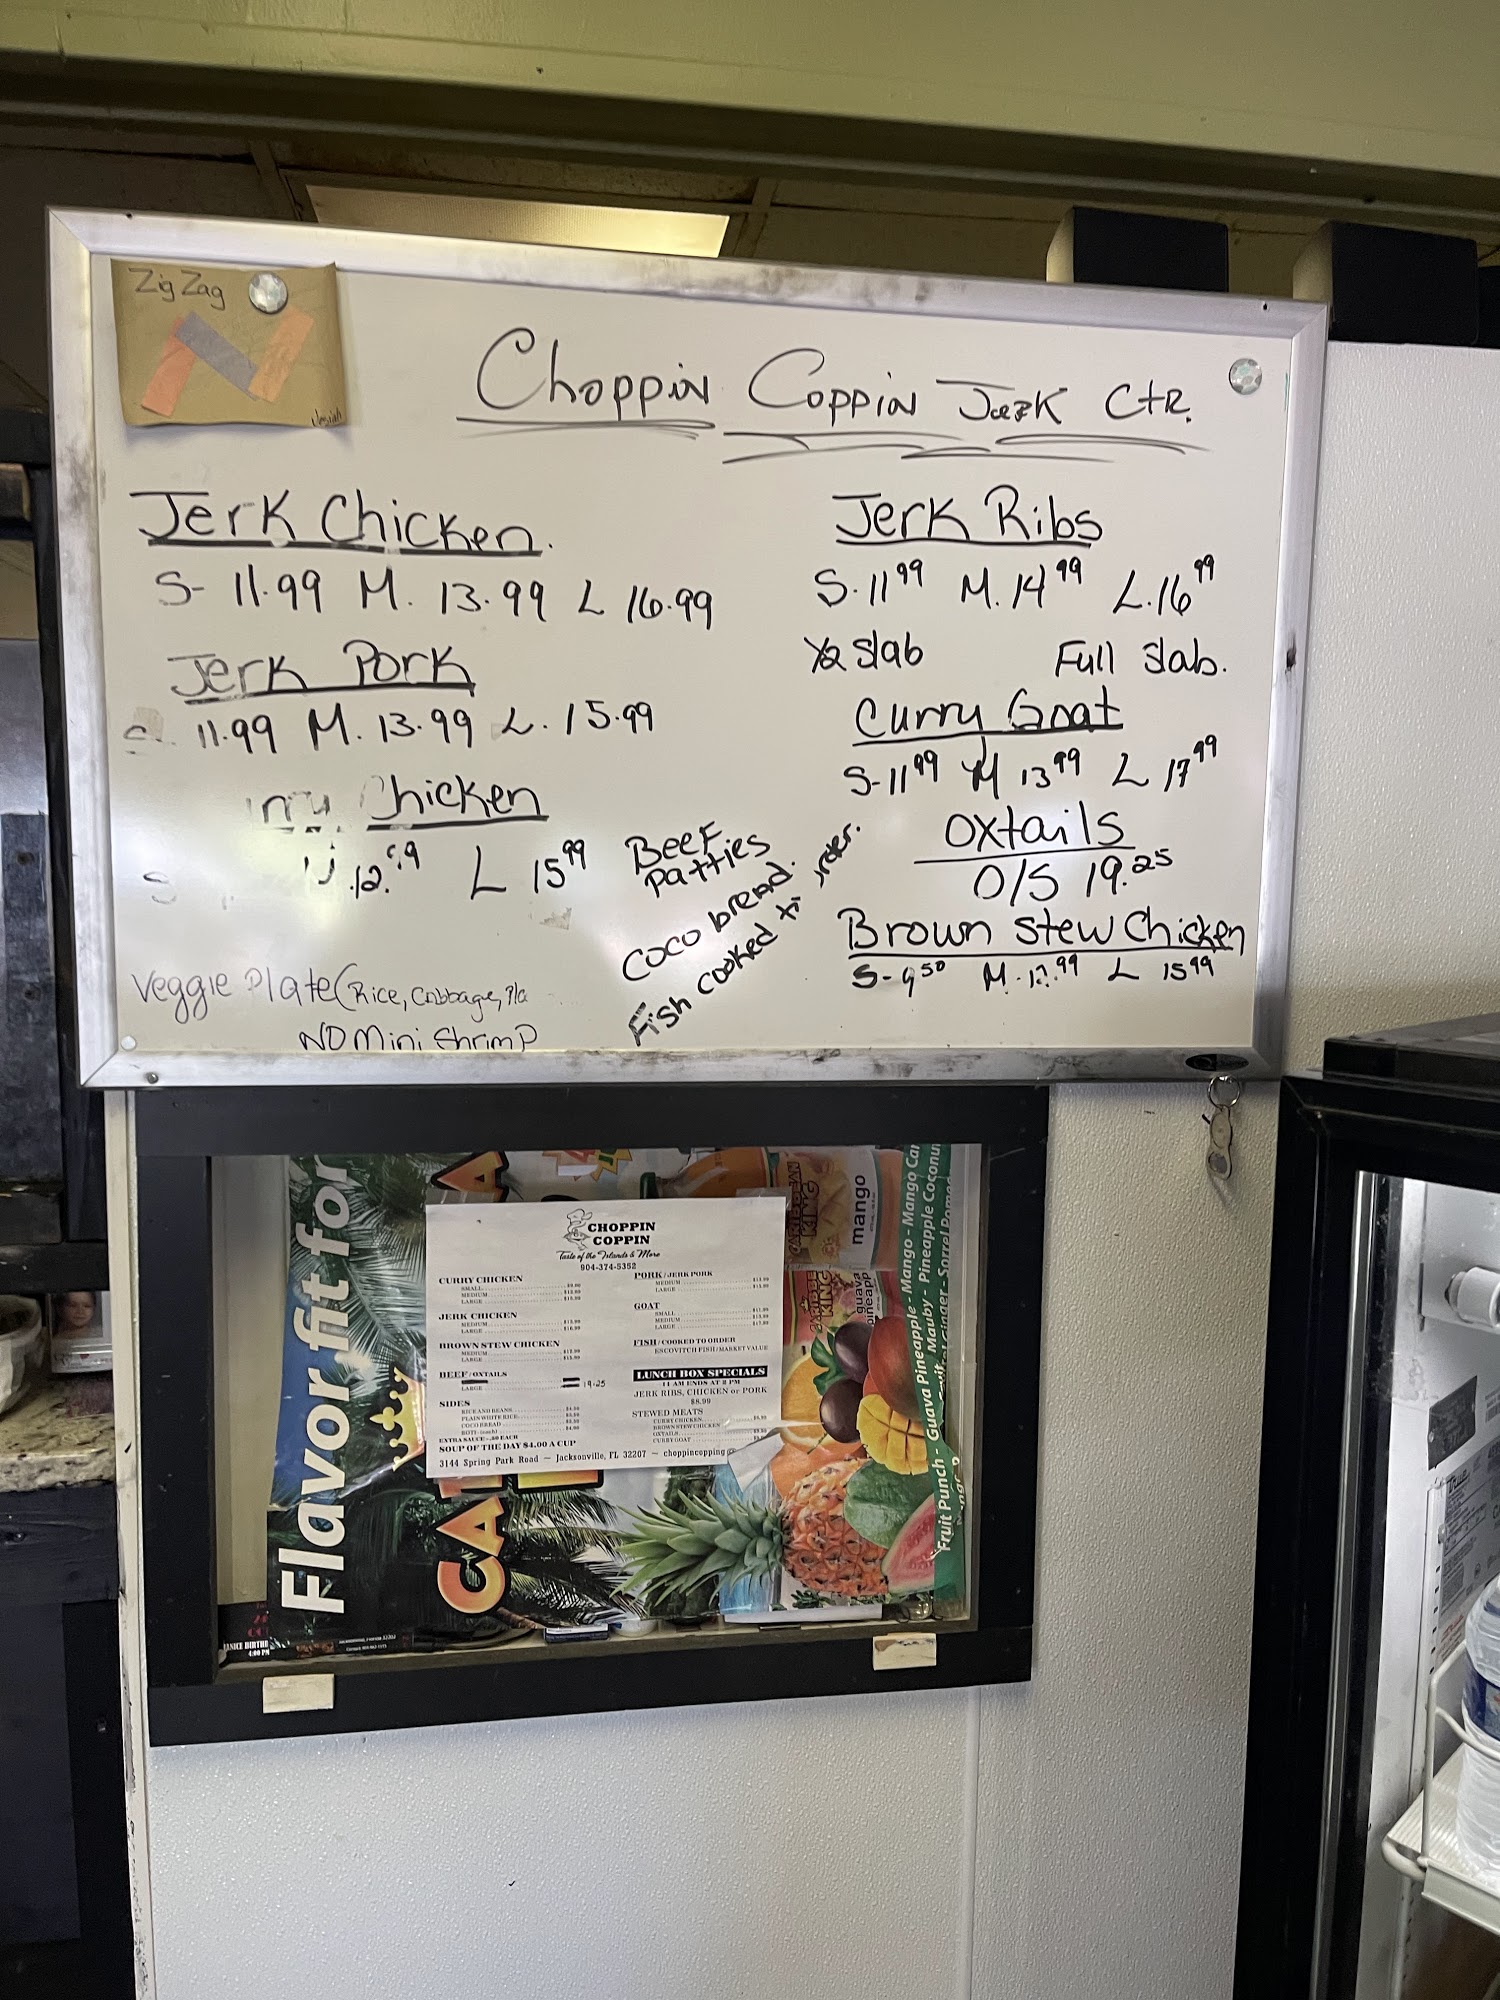 Zig Zag
Choppin Coppin Jerk Ctr.
Jerk Chicken.
S- 11.99 M. 13.99 L 16.99
Jerk Pork
S. 11.99 M. 13.99 L. 15.99
Chicken
S 12.99 L 15 99
Veggie Plate (Rice, Cabbage, Pla
NO Mini Shrimp
Beef
Patties
Coco bread.
Fish cooked to order.
Jerk Ribs
S. 11 99 M. 14 99 L. 16 99
1/2 Slab Full Slab.
Curry Goat
S- 11 99 M 13 99 L 17 99
Oxtails
O/S 19.25
Brown Stew Chicken
S- 9 50 M. 12.99 L 15 99
Flavor fit for
CHOPPIN
COPPIN
Taste of the Islands & More
904-374-5352
CURRY CHICKEN
SMALL
MEDIUM
LARGE
JERK CHICKEN
MEDIUM
LARGE
BROWN STEW CHICKEN
MEDIUM
LARGE
BEEF/OXTAILS
19-25
LARGE
SIDES
RICE AND BEANS
PLAIN WHITE RICE
COCO BREAD
EXTRA SAUCE
SOUP OF THE DAY $4.00 A CUP
PORK/JERK PORK
MEDIUM
LARGE
GOAT
SMALL
MEDIUM
LARGE
FISH/COOKED TO ORDER
ESCOVITCH FISH/MARKET VALUE
LUNCH BOX SPECIALS
11 AM ENDS AT 2 PM
JERK RIBS, CHICKEN or PORK
$8.99
STEWED MEATS
CURRY CHICKEN
BROWN STEW CHICKEN
OXTAILS
CURRY GOAT
3144 Spring Park Road ~ Jacksonville, FL 32207 ~ choppincopping@
CARIBBEAN
KING
mango
guava
pineapp
Fruit Punch - Guava Pineapple - Mango - Mango Car
Mauby - Pineapple Coconu
4:00 PM